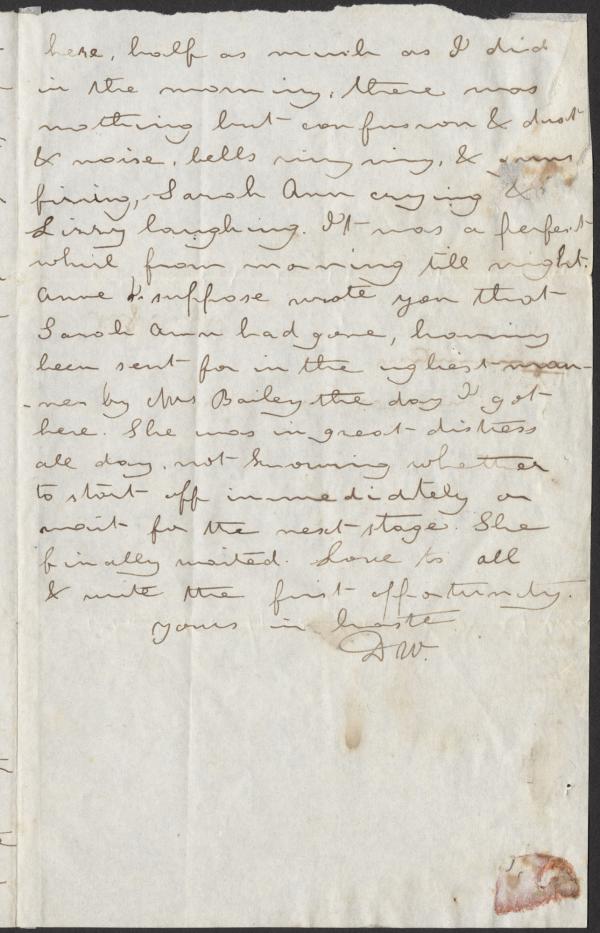 here, half as much as I did
in the morning, there was
nothing but confusion & dust
& noise, bells ringing, & guns
firing, Sarah Ann crying &
Lizzy laughing. It was a perfect
whirl from morning till night.
Anne I suppose wrote you that
Sarah Ann had gone, having
been sent for in the ugliest man-
-ner by Mrs Bailey the day I got
here. She was in great distress
all day, not knowing whether
to start off immediately or
wait for the next stage. She
finally waited. Love to all
& write the first opportunity.
yours in haste
DW.